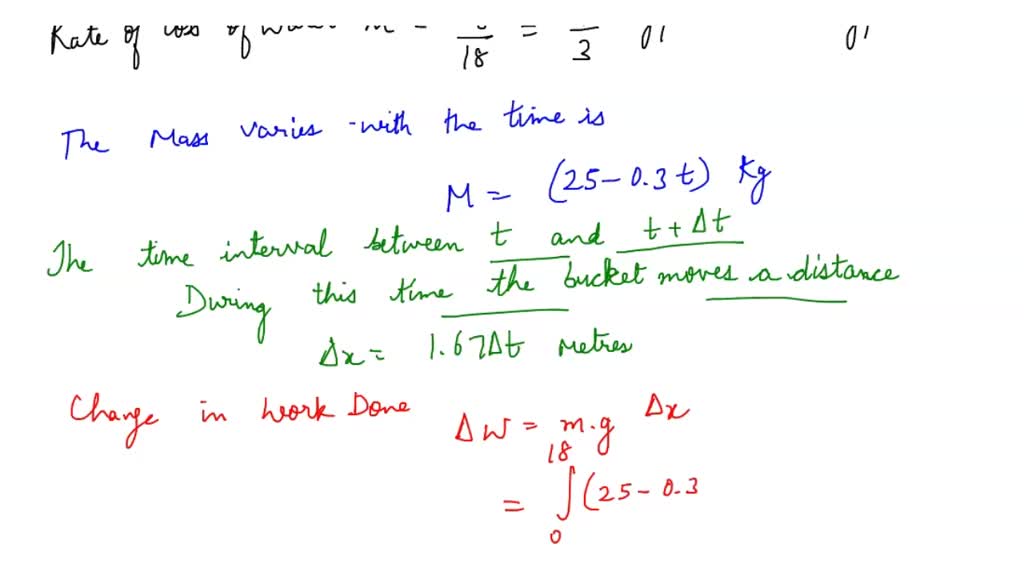 Rate of loss of m = /18 = /3
The Mass varies with the time is
M = (25 - 0.3t) Kg
The time interval between t and t + Δt
During this time the bucket moves a distance
Δx = 1.67Δt metres
Change in work Done ΔW = m.g Δx
= ∫₀¹⁸ (25 - 0.3